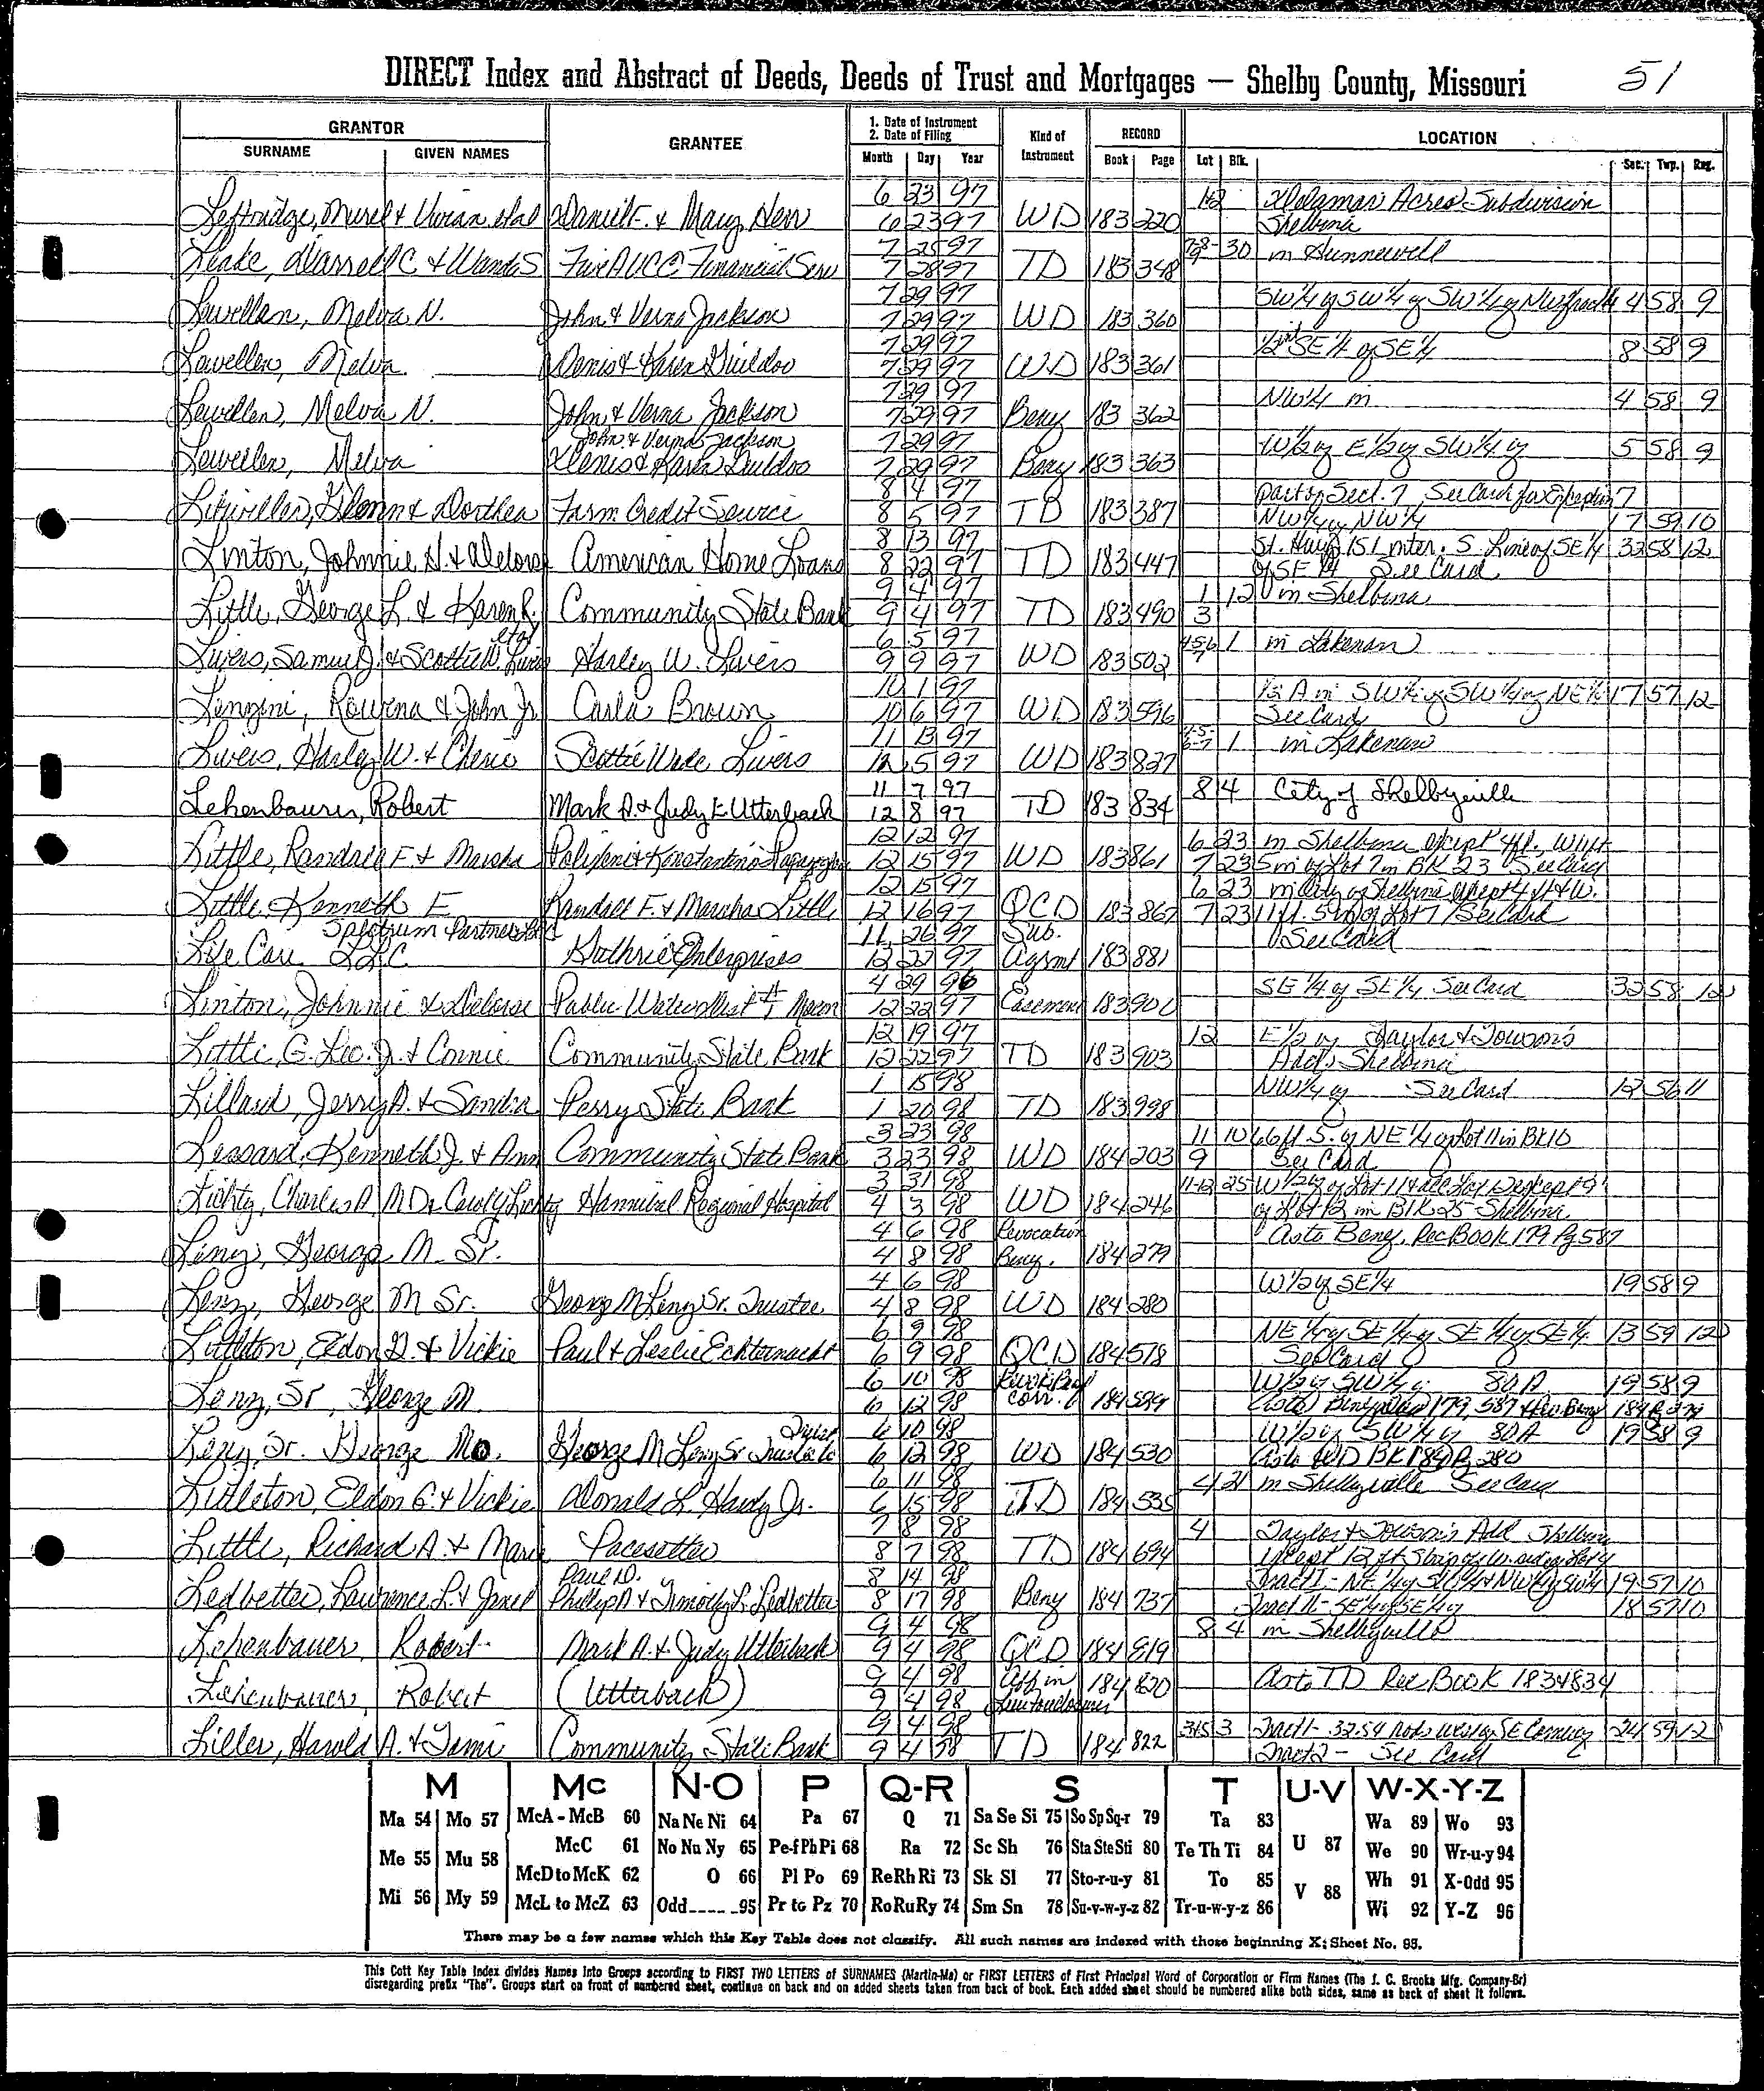 DIRECT Index and Abstract of Deeds, Deeds of Trust and Mortgages — Shelby County, Missouri 51
GRANTOR GRANTEE 1. Date of Instrument 2. Date of Filing Kind of Instrument RECORD LOCATION
SURNAME GIVEN NAMES Month Day Year Book Page Lot Blk. Sec. Twp. Rng.
6 23 97 Acres Subdivision
Leftridge, Murel & Vivian etal Daniel F. & Mary Herr 6 23 97 WD 183 220 Shelbina
7 25 97 30 in Hunnewell
Leake, Darrell C & Wanda S Five AVCO Financial Serv 7 28 97 TD 183 348
7 29 97 SW¼ of SW¼ of SW¼ of 4 58 9
Lewellen, Melva N. John & Verna Jackson 7 29 97 WD 183 360
7 29 97 SE¼ of SE¼ 8 58 9
Lewellen, Melva Denis & Karen 7 29 97 WD 183 361
7 29 97 NW¼ in 4 58 9
Lewellen, Melva N. John & Verna Jackson 7 29 97 Beny 183 362
John & Verna Jackson 7 29 97 W½ of E½ of SW¼ of 5 58 9
Lewellen, Melva Denis & Karen 7 29 97 Beny 183 363
8 4 97 part of Sect. 7 See Card for Exception 7
Litwiller, Glenn & Dorthea Farm Credit Service 8 5 97 TD 183 387 NW¼ of NW¼ 17 59 10
8 13 97 St. Hwy 151 inter. S. Line of SE¼ 32 58 12
Linton, Johnnie H. & Delores American Home Loans 8 22 97 TD 183 447 of SE¼ See Card
9 4 97 1 12 in Shelbina
Little, George L. & Karen R. Community State Bank 9 4 97 TD 183 490 3
etal 6 5 97 4-5-6 1 in Lakenan
Livers, Samuel J. & Scottie W. Livers Harley W. Livers 9 9 97 WD 183 502 7
10 1 97 ½ A in SW¼ of SW¼ of NE¼ 17 57 12
Lenzini, Rowena & John Jr Carla Brown 10 6 97 WD 183 596 See Card
11 13 97 1 in Lakenan
Livers, Harley W. & Cherie Scottie Wade Livers 12 5 97 WD 183 827
11 7 97 8 4 City of Shelbyville
Lehenbauer, Robert Mark A. & Judy E Utterback 12 8 97 TD 183 834
12 12 97 6 23 in Shelbina except 4ft. W
Little, Randall F & Marsha 12 15 97 WD 183 861 7 23 of Lot 7 in BK 23 See Card
12 15 97 6 23 in City of Shelbina except 4 ft W.
Little, Kenneth E Randall F. & Marsha Little 12 16 97 QCD 183 867 7 23 11 ft. of Lot 7 / See Card
Spectrum Partners 11 26 97 Sub. See Card
Life Care LLC Guthrie Enterprises 12 22 97 Agrmt 183 881
4 29 96 SE¼ of SE¼ See Card 32 58 12
Linton, Johnnie & Delores Public Water Dist #1 Macon 12 22 97 Easement 183 901
12 19 97 12 E½ of Taylor & Towson's
Little, G. Leo. Jr. & Connie Community State Bank 12 22 97 TD 183 903 Add. Shelbina
1 15 98 NW¼ of See Card 12 56 11
Lillard, Jerry D. & Sandra Perry State Bank 1 20 98 TD 183 998
3 23 98 11 10 66 ft S. of NE¼ of Lot 11 in BK 10
Lessard, Kenneth J. & Ann Community State Bank 3 23 98 WD 184 203 9 See Card
3 31 98 11-12 25 W½ of Lot 11 & all Lot 12 except 9'
Lichty, Charles A MD & Carol Y Lichty Hannibal Regional Hospital 4 3 98 WD 184 246 of Lot 12 in Blk 25 Shelbina
4 6 98 Revocation As to Beny. Rec Book 179 Pg 587
Lenz, George M Sr. 4 8 98 Beny. 184 279
4 6 98 W½ of SE¼ 19 58 9
Lenz, George M Sr. George M Lenz Sr. Trustee 4 8 98 WD 184 280
6 9 98 NE¼ of SE¼ of SE¼ of SE¼ 13 59 12
Littleton, Eldon G. & Vickie Paul & Leslie Echternacht 6 9 98 QCD 184 518 See Card
6 10 98 W½ of SW¼ of 80A 19 58 9
Lenz, Sr, George M. 6 12 98 Corr. 184 529 179, 587 184 P 279
Trust 6 10 98 W½ of SW¼ of 80A 19 58 9
Lenz, Sr. George M. George M Lenz Sr Trustee 6 12 98 WD 184 530 As to WD BK 184 Pg 280
6 11 98 4 21 in Shelbyville See Card
Littleton, Eldon G. & Vickie Donald L. Hardy Jr. 6 15 98 TD 184 535
7 8 98 4 Taylor & Towson's Add Shelbina
Little, Richard A. & Marie Pacesetter 8 7 98 TD 184 694 except 12 ft Strip of W. side of Lot 4
Paul D. 8 14 98 Tract I - NE¼ of SW¼ & NW¼ of SW¼ 19 57 10
Ledbetter, Lawrence L. & Janet Phillip A & Timothy L. Ledbetter 8 17 98 Beny 184 737 Tract II - SE¼ of SE¼ of 18 57 10
9 4 98 8 4 in Shelbyville
Lehenbauer, Robert Mark A. & Judy Utterback 9 4 98 QCD 184 819
9 4 98 Aff in As to TD Rec Book 183 & 834
Lehenbauer, Robert (Utterback) 9 4 98 Lieu Foreclosure 184 820
9 4 98 3 Tract 1- 32.54 rods West of SE Corner of 24 59 12
Liller, Harold A. & Tami Community State Bank 9 4 98 TD 184 822 Tract 2 - See Card
M Mc N-O P Q-R S T U-V W-X-Y-Z
Ma 54 Mo 57 McA - McB 60 Na Ne Ni 64 Pa 67 Q 71 Sa Se Si 75 So Sp Sq-r 79 Ta 83 Wa 89 Wo 93
Me 55 Mu 58 McC 61 No Nu Ny 65 Pe-f Ph Pi 68 Ra 72 Sc Sh 76 Sta Ste Sti 80 Te Th Ti 84 U 87 We 90 Wr-u-y 94
McD to McK 62 O 66 Pl Po 69 Re Rh Ri 73 Sk Sl 77 Sto-r-u-y 81 To 85 Wh 91 X-Odd 95
Mi 56 My 59 McL to McZ 63 Odd---- -95 Pr to Pz 70 Ro Ru Ry 74 Sm Sn 78 Su-v-w-y-z 82 Tr-u-w-y-z 86 V 88 Wi 92 Y-Z 96
There may be a few names which this Key Table does not classify. All such names are indexed with those beginning X; Sheet No. 95.
This Cott Key Table Index divides Names Into Groups according to FIRST TWO LETTERS of SURNAMES (Martin-Ma) or FIRST LETTERS of First Principal Word of Corporation or Firm Names (The J. C. Brooks Mfg. Company-Br)
disregarding prefix "The". Groups start on front of numbered sheet, continue on back and on added sheets taken from back of book. Each added sheet should be numbered alike both sides, same as back of sheet it follows.